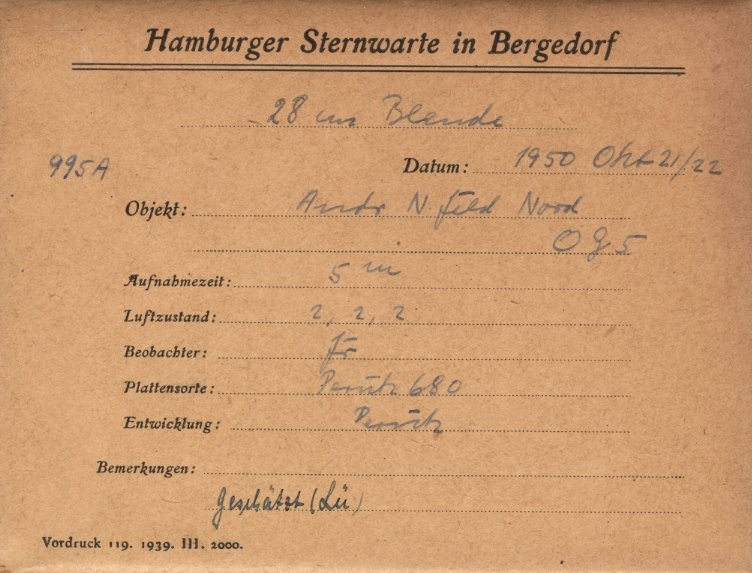 Hamburger Sternwarte in Bergedorf
28 cm Blende
995A
Datum: 1950 Okt 21/22
Objekt: Andr N Feld Nord
OG5
Aufnahmezeit: 5 m
Luftzustand: 2, 2, 2
Beobachter: Fr
Plattensorte: Perutz 680
Entwicklung: Perutz
Bemerkungen:
Geschätzt (Lü)
Vordruck 119. 1939. III. 2000.